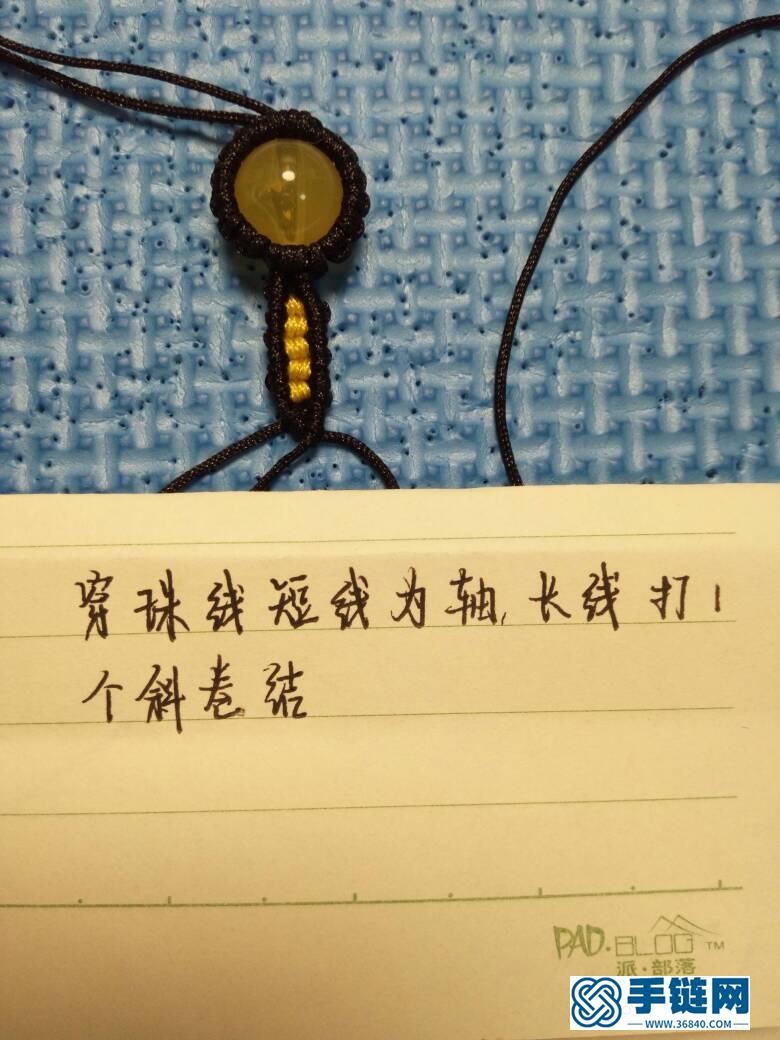 穿珠线短线为轴,长线打1
个斜卷结
PAD·BLOG™
派·部落
手链网
WWW.36840.COM